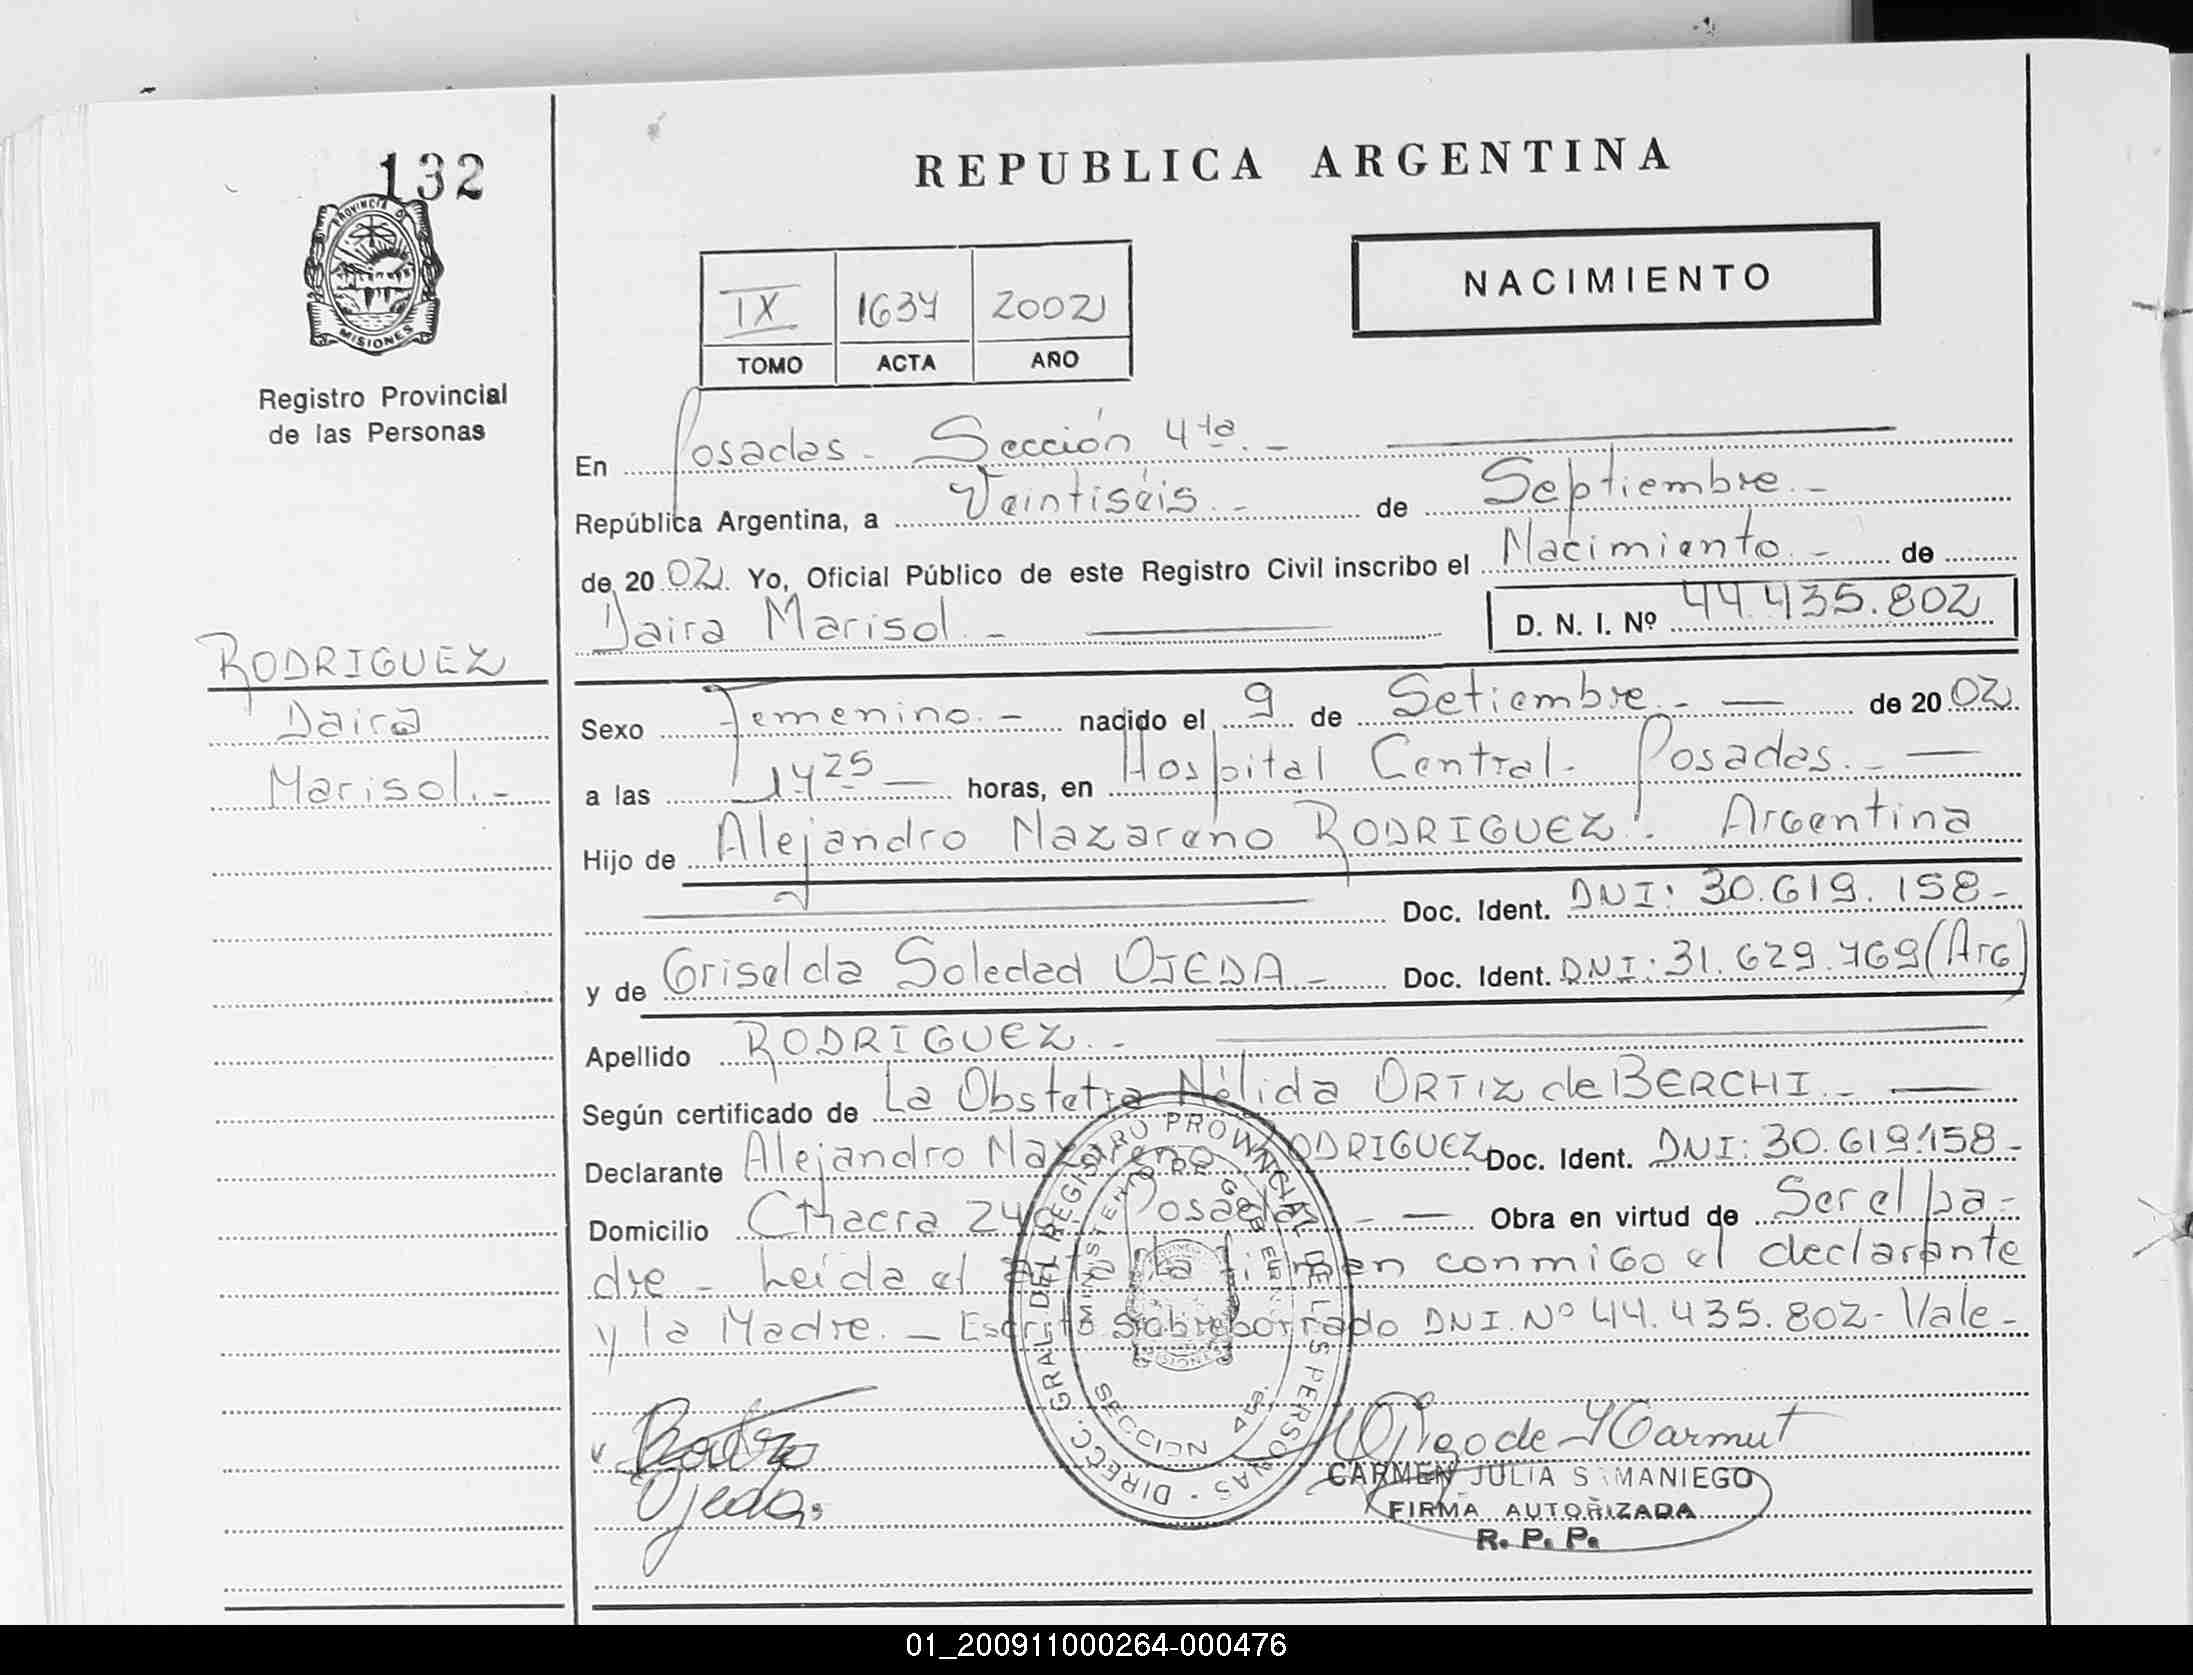 132
PROVINCIA DE
MISIONES
Registro Provincial
de las Personas
REPUBLICA ARGENTINA
NACIMIENTO
IX 1634 2002
TOMO ACTA AÑO
En Posadas - Sección 4ta. -
República Argentina, a Veintiséis. - de Septiembre. -
de 20 02. Yo, Oficial Público de este Registro Civil inscribo el Nacimiento. - de
Daira Marisol. - D. N. I. Nº 44.435.802
RODRIGUEZ
Daira
Marisol. -
Sexo Femenino. - nacido el 9 de Setiembre. - de 20 02.
a las 14 25 horas, en Hospital Central - Posadas. -
Hijo de Alejandro Nazareno RODRIGUEZ. - Argentina
Doc. Ident. DNI: 30.619.158 -
y de Griselda Soledad OJEDA - Doc. Ident. DNI: 31.629.469 (Arg)
Apellido RODRIGUEZ. -
Según certificado de La Obstetra Nélida ORTIZ de BERCHI. -
Declarante Alejandro Nazareno RODRIGUEZ Doc. Ident. DNI: 30.619.158 -
Domicilio Chacra Posadas - Obra en virtud de Ser el pa-
dre - Leída el Acta la firman conmigo el declarante
y la Madre. - Escrito Sobreborrado DNI. Nº 44.435.802 - Vale -
DIRECC. GRAL. DEL REGISTRO PROVINCIAL DE LAS PERSONAS
MINISTERIO DE GOBIERNO
SECCION 4ta.
Ojeda
CARMEN JULIA SAMANIEGO
FIRMA AUTORIZADA
R. P. P.
01_200911000264-000476